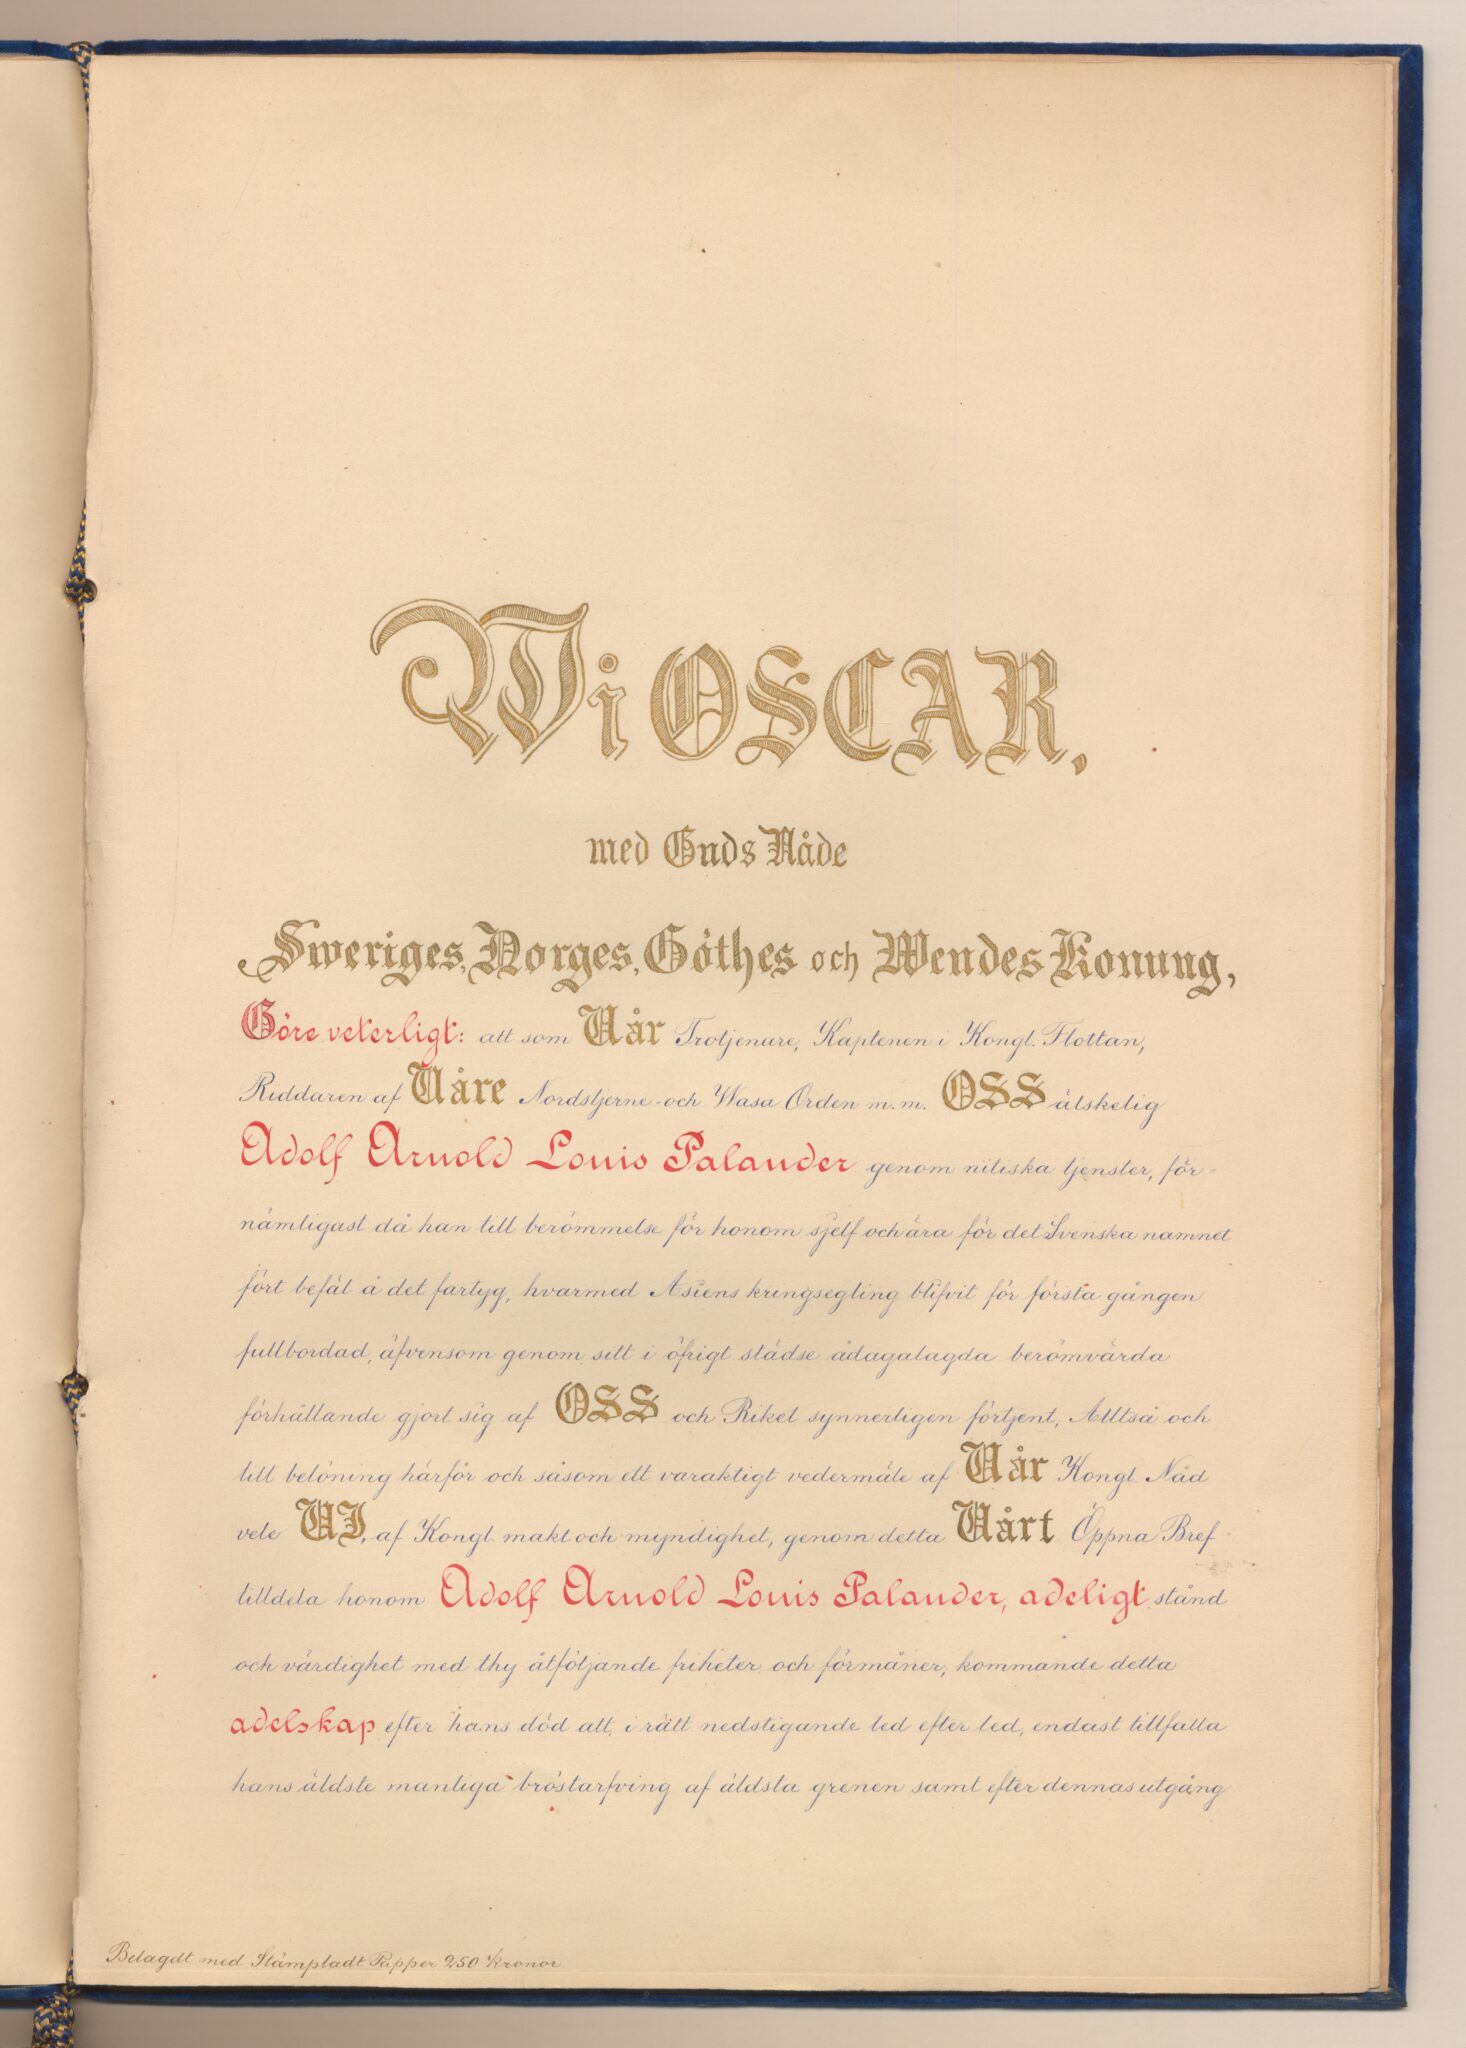 Wi OSCAR,
med Guds Nåde
Sweriges, Norges, Göthes och Wendes Konung,
Göre veterligt: att som Vår Trotjenare, Kaptenen i Kongl. Flottan,
Riddaren af Våre Nordstjerne- och Wasa Orden m.m. OSS älskelig
Adolf Arnold Louis Palander genom nitiska tjenster, för-
nämligast då han till berömmelse för honom sjelf och ära för det Svenska namnet
fört befäl å det fartyg, hvarmed Asiens kringsegling blifvit för första gången
fullbordad, äfvensom genom sitt i öfrigt städse ådagalagda berömvärda
förhållande gjort sig af OSS och Riket synnerligen förtjent, Alltså och
till belöning härför och såsom ett varaktigt vedermäle af Vår Kongl. Nåd
vele VI, af Kongl. makt och myndighet, genom detta Vårt Öppna Bref
tilldela honom Adolf Arnold Louis Palander, adeligt stånd
och värdighet med thy åtföljande friheter och förmåner, kommande detta
adelskap efter hans död att, i rätt nedstigande led efter led, endast tillfalla
hans äldste manliga bröstarfving af äldsta grenen samt efter dennas utgång
Belagdt med Stämpladt Papper 250 kronor.